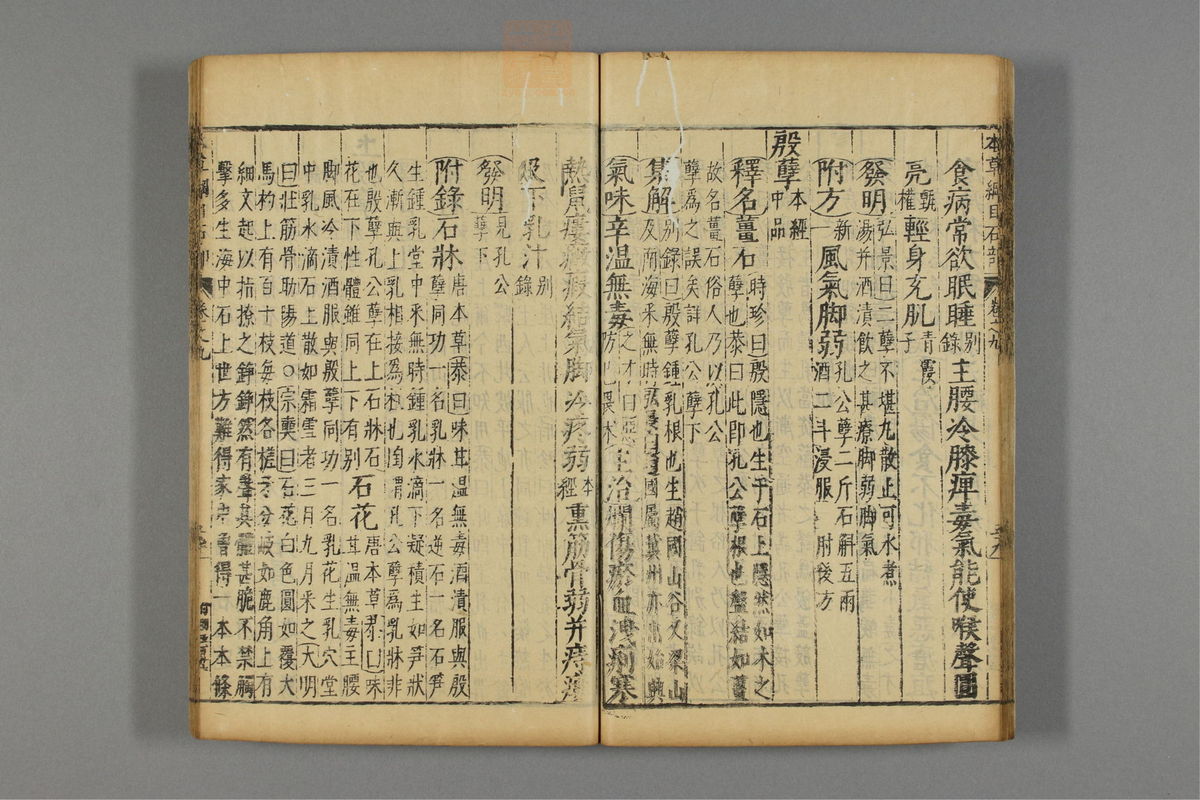 本草綱目石部 卷之九
食病常欲眠睡別錄主腰冷膝痺毒氣能使喉聲圓
亮甄權輕身充肌青霞子
發明弘景曰三孽不堪丸散止可水煮
湯并酒漬飲之甚療脚弱脚氣
附方新一風氣脚弱孔公孽二斤石解五兩
酒二斗浸服 肘後方
殷孽本經中品
釋名薑石時珍曰殷隱也生于石上隱然如木之
孽也恭曰此即孔公孽根也盤結如薑
故名薑石俗人乃以孔公
孽爲之誤矣詳孔公孽下
集解別錄曰殷孽鍾乳根也生趙國山谷又梁山
及南海采無時國屬冀州亦出始興
氣味辛温無毒之才曰惡防已畏术主治爛傷瘀血洩痢寒
熱鼠瘻癥瘕結氣脚冷疼弱本經熏筋骨弱并痔瘻
及下乳汁別錄
發明見孔公孽下
附錄石牀唐本草恭曰味甘温無毒酒漬服與殷
孽同功一名乳牀一名逆石一名石笋
生鍾乳堂中采無時鍾乳水滴下凝積生如笋狀
久漸與上乳相接爲柱也陶謂孔公孽爲乳牀非
也殷孽孔公孽在上石牀石
花在下性體雖同上下有别石花唐本草恭曰味
甘温無毒主腰
脚風冷漬酒服與殷孽同功一名乳花生乳穴堂
中乳水滴石上散如霜雪者三月九月采之大明
曰壯筋骨助陽道○宗奭曰石花白色圓如覆大
馬杓上有百十枝每枝各槎牙分岐如鹿角上有
細文起以指撩之錚錚然有聲其體甚脆不禁觸
擊多生海中石上世方難得家中曾得一本本條
卷之九